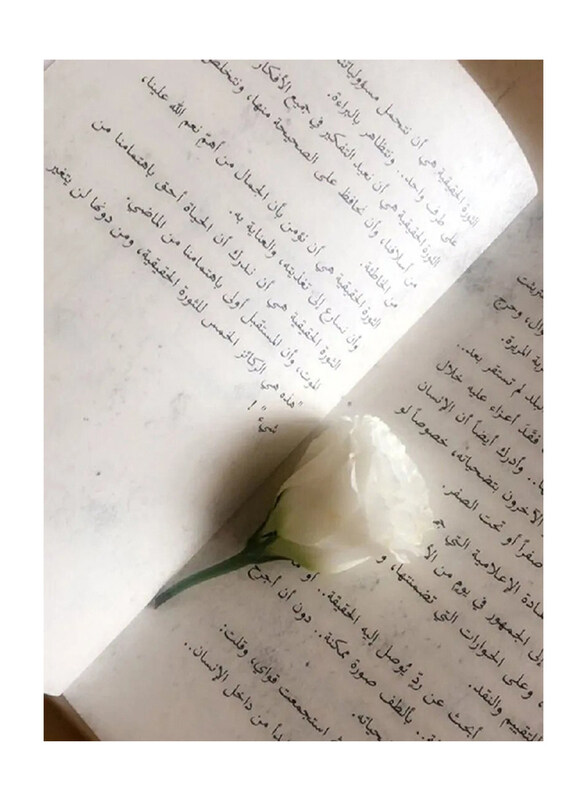 الثورة الحقيقية هي أن نتحمل مسؤولياتنا
على طرف واحد.. ونتظاهر بالبراءة.
الثورة الحقيقية هي أن نعيد التفكير في جميع الأفكار
من أسلافنا، وأن نحافظ على الصحيحة منها، ونتخلص
من الخاطئة.
الثورة الحقيقية هي أن نؤمن بأن الجمال من أهمّ نعم الله علينا،
وأن نسارع إلى تغذيته، والعناية به.
الثورة الحقيقية هي أن ندرك أن الحياة أحق باهتمامنا من
الموت، وأن المستقبل أولى باهتمامنا من الماضي.
"هذه هي الركائز الخمس للثورة الحقيقية، ومن دونها لن يتغير
شيء"!
وحرج
المريرة.
لم تستقر بعد..
فقَدَ أعزاء عليه خلال
وأدرك أيضاً أن الإنسان
الآخرون بتضحياته، خصوصاً لو
صفراً أو تحت الصفر.
الإعلامية التي
إلى الجمهور في يوم من
وعلى الحوارات التي تضمنتها،
التقييم والنقد.
أبحث عن ردٍّ يُوصل إليه الحقيقة.. أو
بألطف صورة ممكنة.. دون أن أجرح
استجمعت قواي، وقلت:
من داخل الإنسان..